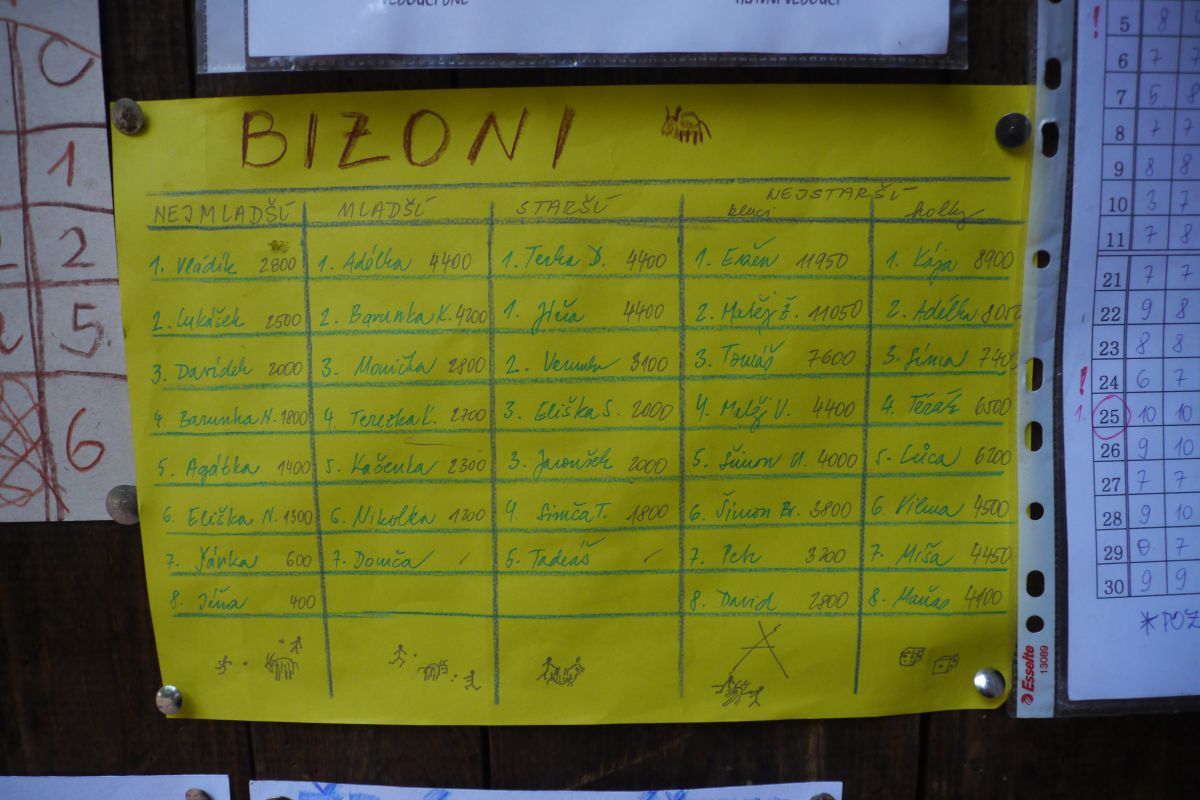 VEDOUCÍ DNE HLAVNÍ VEDOUCÍ
BIZONI
NEJMLADŠÍ MLADŠÍ STARŠÍ NEJSTARŠÍ
kluci holky
1. Vládík 2800 1. Adélka 4400 1. Terka D. 4400 1. 11950 1. Kája 8900
2. Lukášek 2500 2. Barunka K. 4200 1. Jíťa 4400 2. Matěj Š. 11050 2. Adélka 8050
3. Davídek 2000 3. Monička 2800 2. Verunka 3100 3. Tomáš 7600 3. Simča 740
4. Barunka N. 1800 4. Terezka K. 2700 3. Eliška S. 2000 4. Matěj V. 4400 4. 6500
5. Agátka 1400 5. Kačenka 2300 3. Jaroušek 2000 5. Šimon 4000 5. Lůca 6200
6. Eliška N. 1300 6. Nikolka 1200 4. Simča T. 1800 6. Šimon Br. 3800 6. Vilma 4500
7. Šárka 600 7. Domča / 5. Tadeáš / 7. Petr 3200 7. Míša 4450
8. 400 8. David 2800 8. 4100
0
1
2
2
5
6
! 5 8
6 7 7
7 5 8
8 7 7
9 8 8
10 3 7
11 7 8
21 7 7
22 9 8
23 8 8
! 24 6 7
1. 25 10 10
26 9 10
27 7 7
28 9 10
29 0. 7
30 9 9
*POZ
Esselte 13089